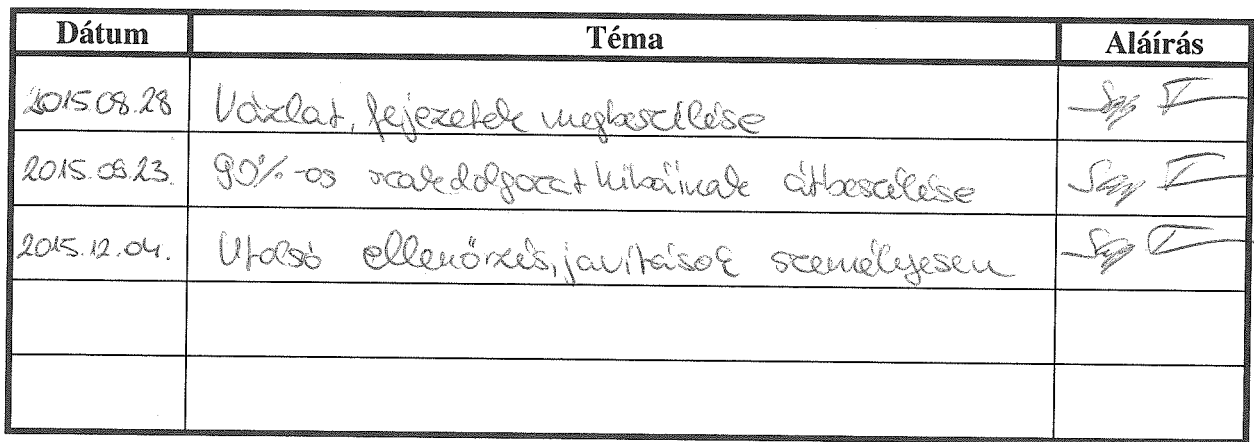 Dátum Téma Aláírás
2015.08.28 Vázlat, fejezetek megbeszélése
2015.09.23. 90%-os szakdolgozat hibáinak átbeszélése
2015.12.04. Utolsó ellenőrzés, javítások személyesen